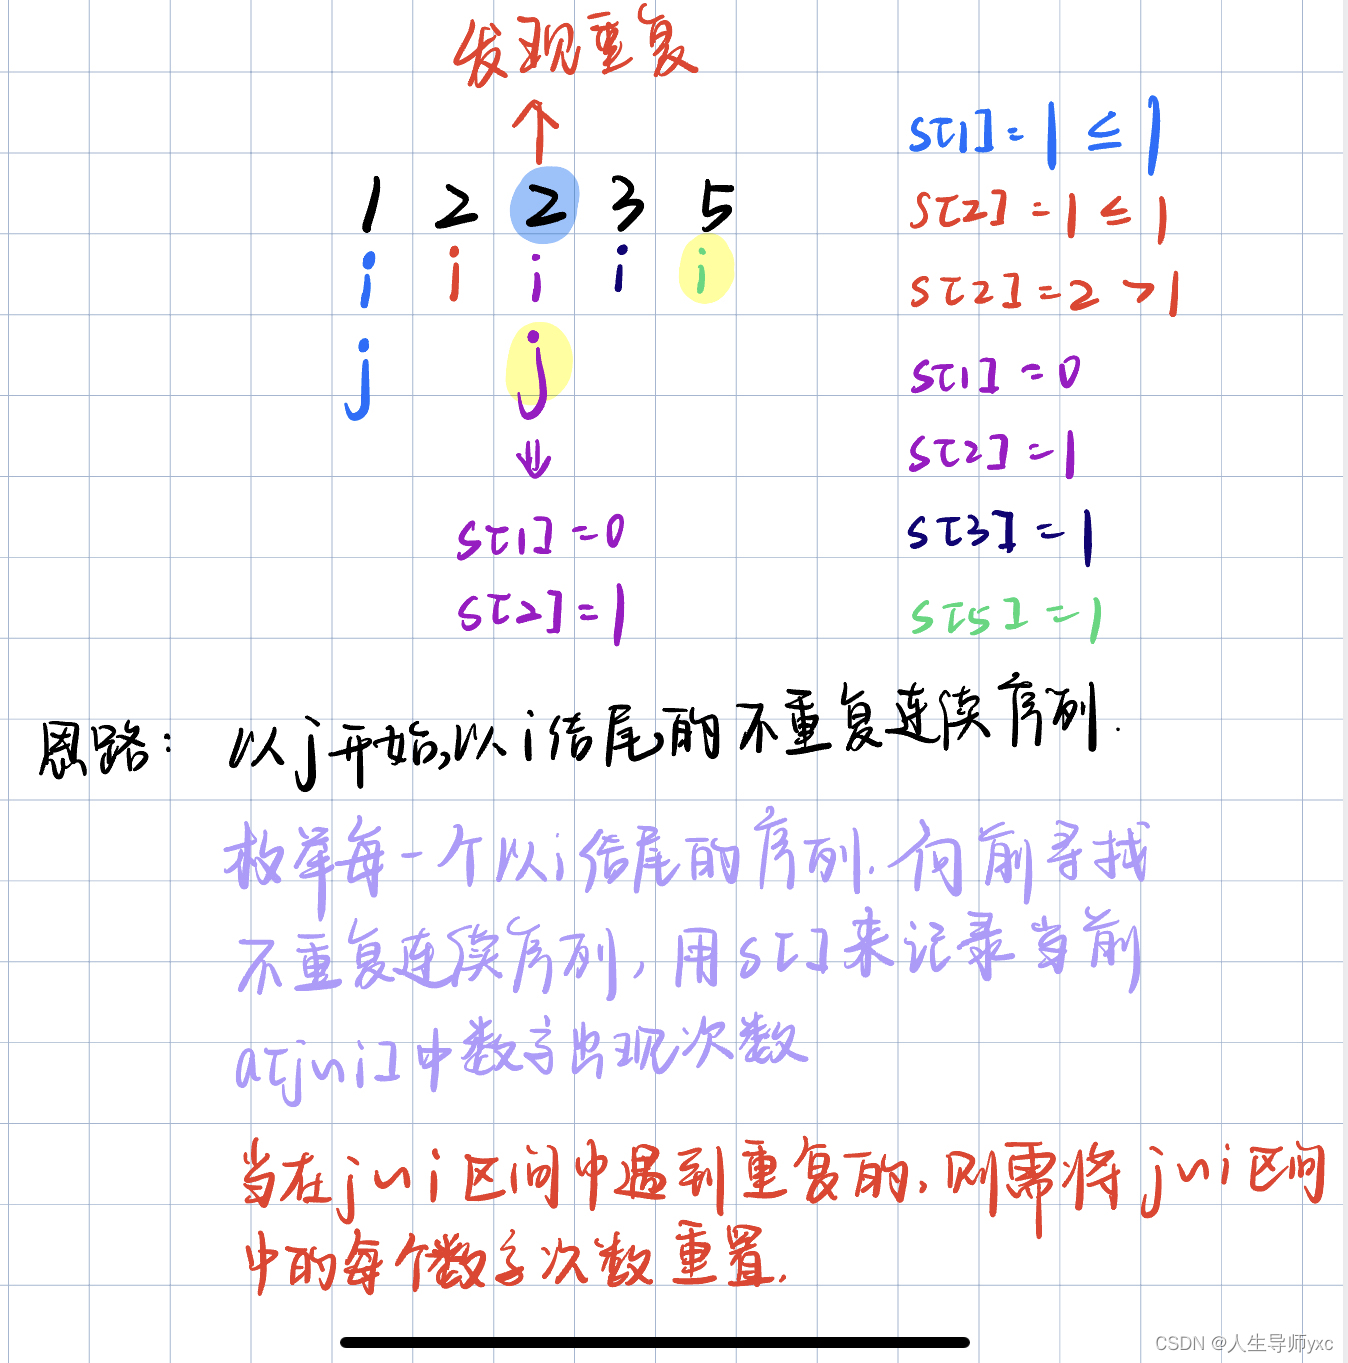 发现重复
1 2 2 3 5
i i i i i
j j
s[1]=0
s[2]=1
s[1]=1≤1
s[2]=1≤1
s[2]=2>1
s[1]=0
s[2]=1
s[3]=1
s[5]=1
思路：以j开始,以i结尾的不重复连续序列.
枚举每一个以i结尾的序列.向前寻找
不重复连续序列,用s[]来记录当前
a[j~i]中数字出现次数
当在j~i区间中遇到重复的,则需将j~i区间
中的每个数字次数重置.
CSDN @人生导师yxc